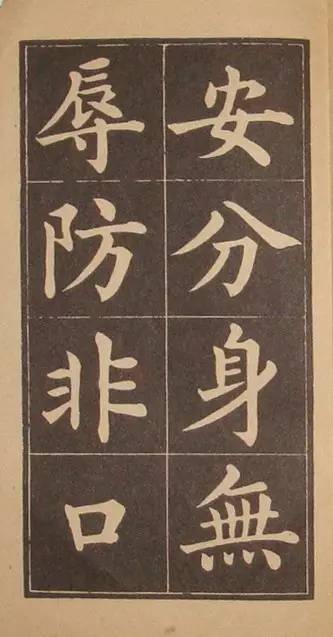 安分身無
辱防非口